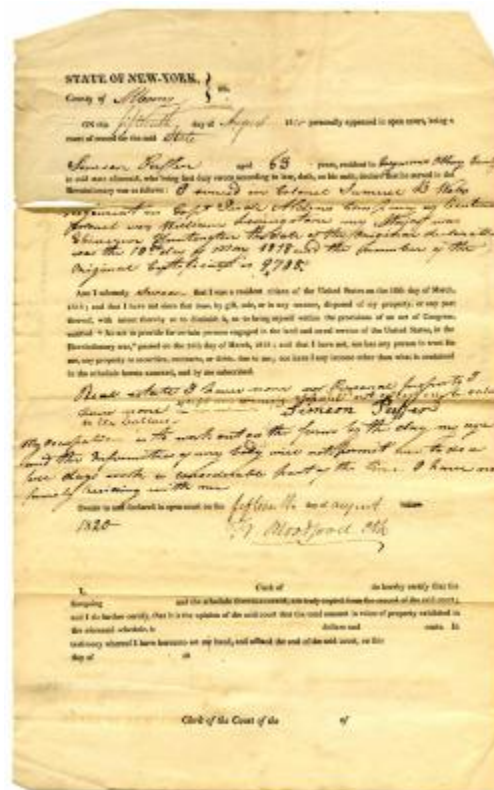 STATE OF NEW-YORK, } ss.
County of Albany
ON this fifteenth day of August 1820 personally appeared in open court, being a
court of record for the said State
Simeon Puffer aged 63 years, resident in Albany County
in said state aforesaid, who being first duly sworn according to law, doth, on his oath, declare that he served in the
Revolutionary war as follows: I served in Colonel Samuel B Webbs
regiment in Capt my Lieutenant
Colonel was William Livingston my Major was
Ebenezer Huntington the date of the original declaration
was the 18th day of May 1818 and the number of the
original Certificate is 9785
And I solemnly swear that I was a resident citizen of the United States on the 18th day of March,
1818; and that I have not since that time, by gift, sale, or in any manner, disposed of my property, or any part
thereof, with intent thereby so to diminish it, as to bring myself within the provisions of an act of Congress,
entitled "An act to provide for certain persons engaged in the land and naval service of the United States, in the
Revolutionary war," passed on the 18th day of March, 1818; and that I have not, nor has any person in trust for
me, any property or securities, contracts, or debts, due to me; nor have I any income other than what is contained
in the schedule hereto annexed, and by me subscribed.
Real estate I have none nor Personal property I
have none
Simeon Puffer
My occupation is to work out on the farms by the day my age
and the infirmities of my body will not permit me to do a
days work a considerable part of the time I have no
family residing with me
Sworn to and declared in open court on the fifteenth day of August
1820
Clk
I, Clerk of do hereby certify that the
foregoing and the schedule thereto annexed, are truly copied from the record of the said court;
and I do further certify, that it is the opinion of the said court that the total amount in value of property exhibited in
the aforesaid schedule, is dollars and cents. In
testimony whereof I have hereunto set my hand, and affixed the seal of the said court, on this
day of
Clerk of the Court of the of